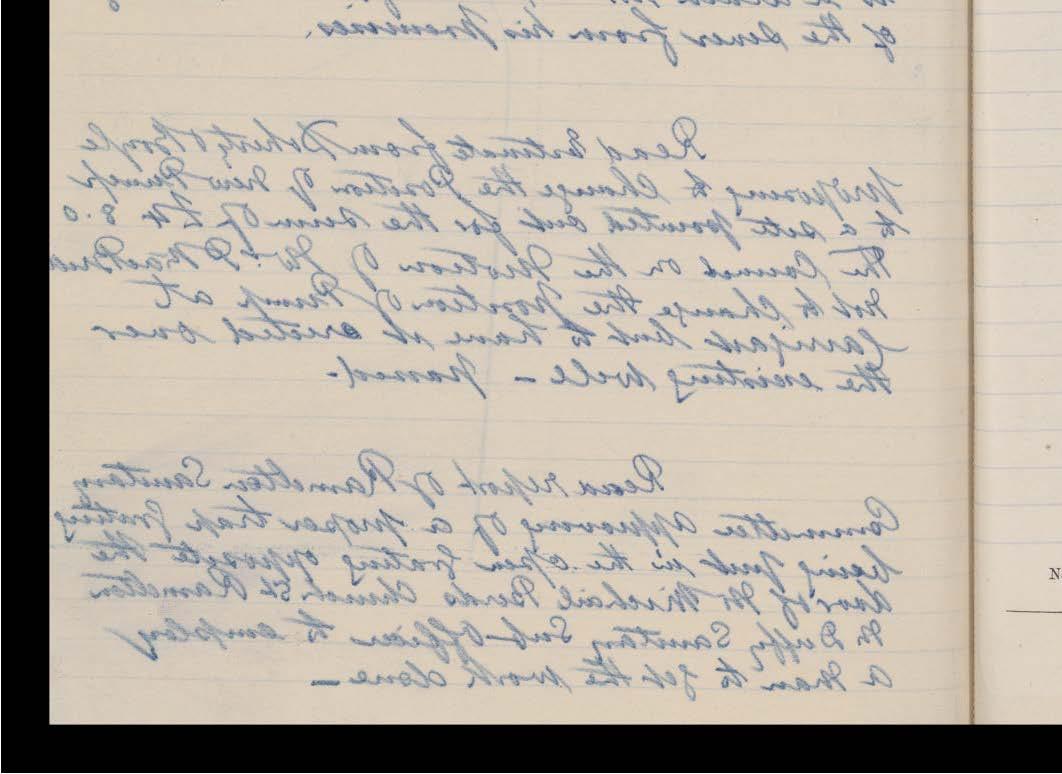 of the sewer from his premises.
Read Estimate from Doherty & Boyle
proposing to Change the Position of New Pump
to a site pointed out for the sum of £4 8.0
the Council on the Motion of
not to Change the position of Pump at
Carrigart but to have it erected over
the existing well – passed.
Read report of Ramelton Sanitary
Committee approving of a proper trap grating
being put in the open grating opposite the
door of Mr Michael Church St Ramelton
Mr Duffy Sanitary Sub-Officer to employ
a man to get the work done –
N